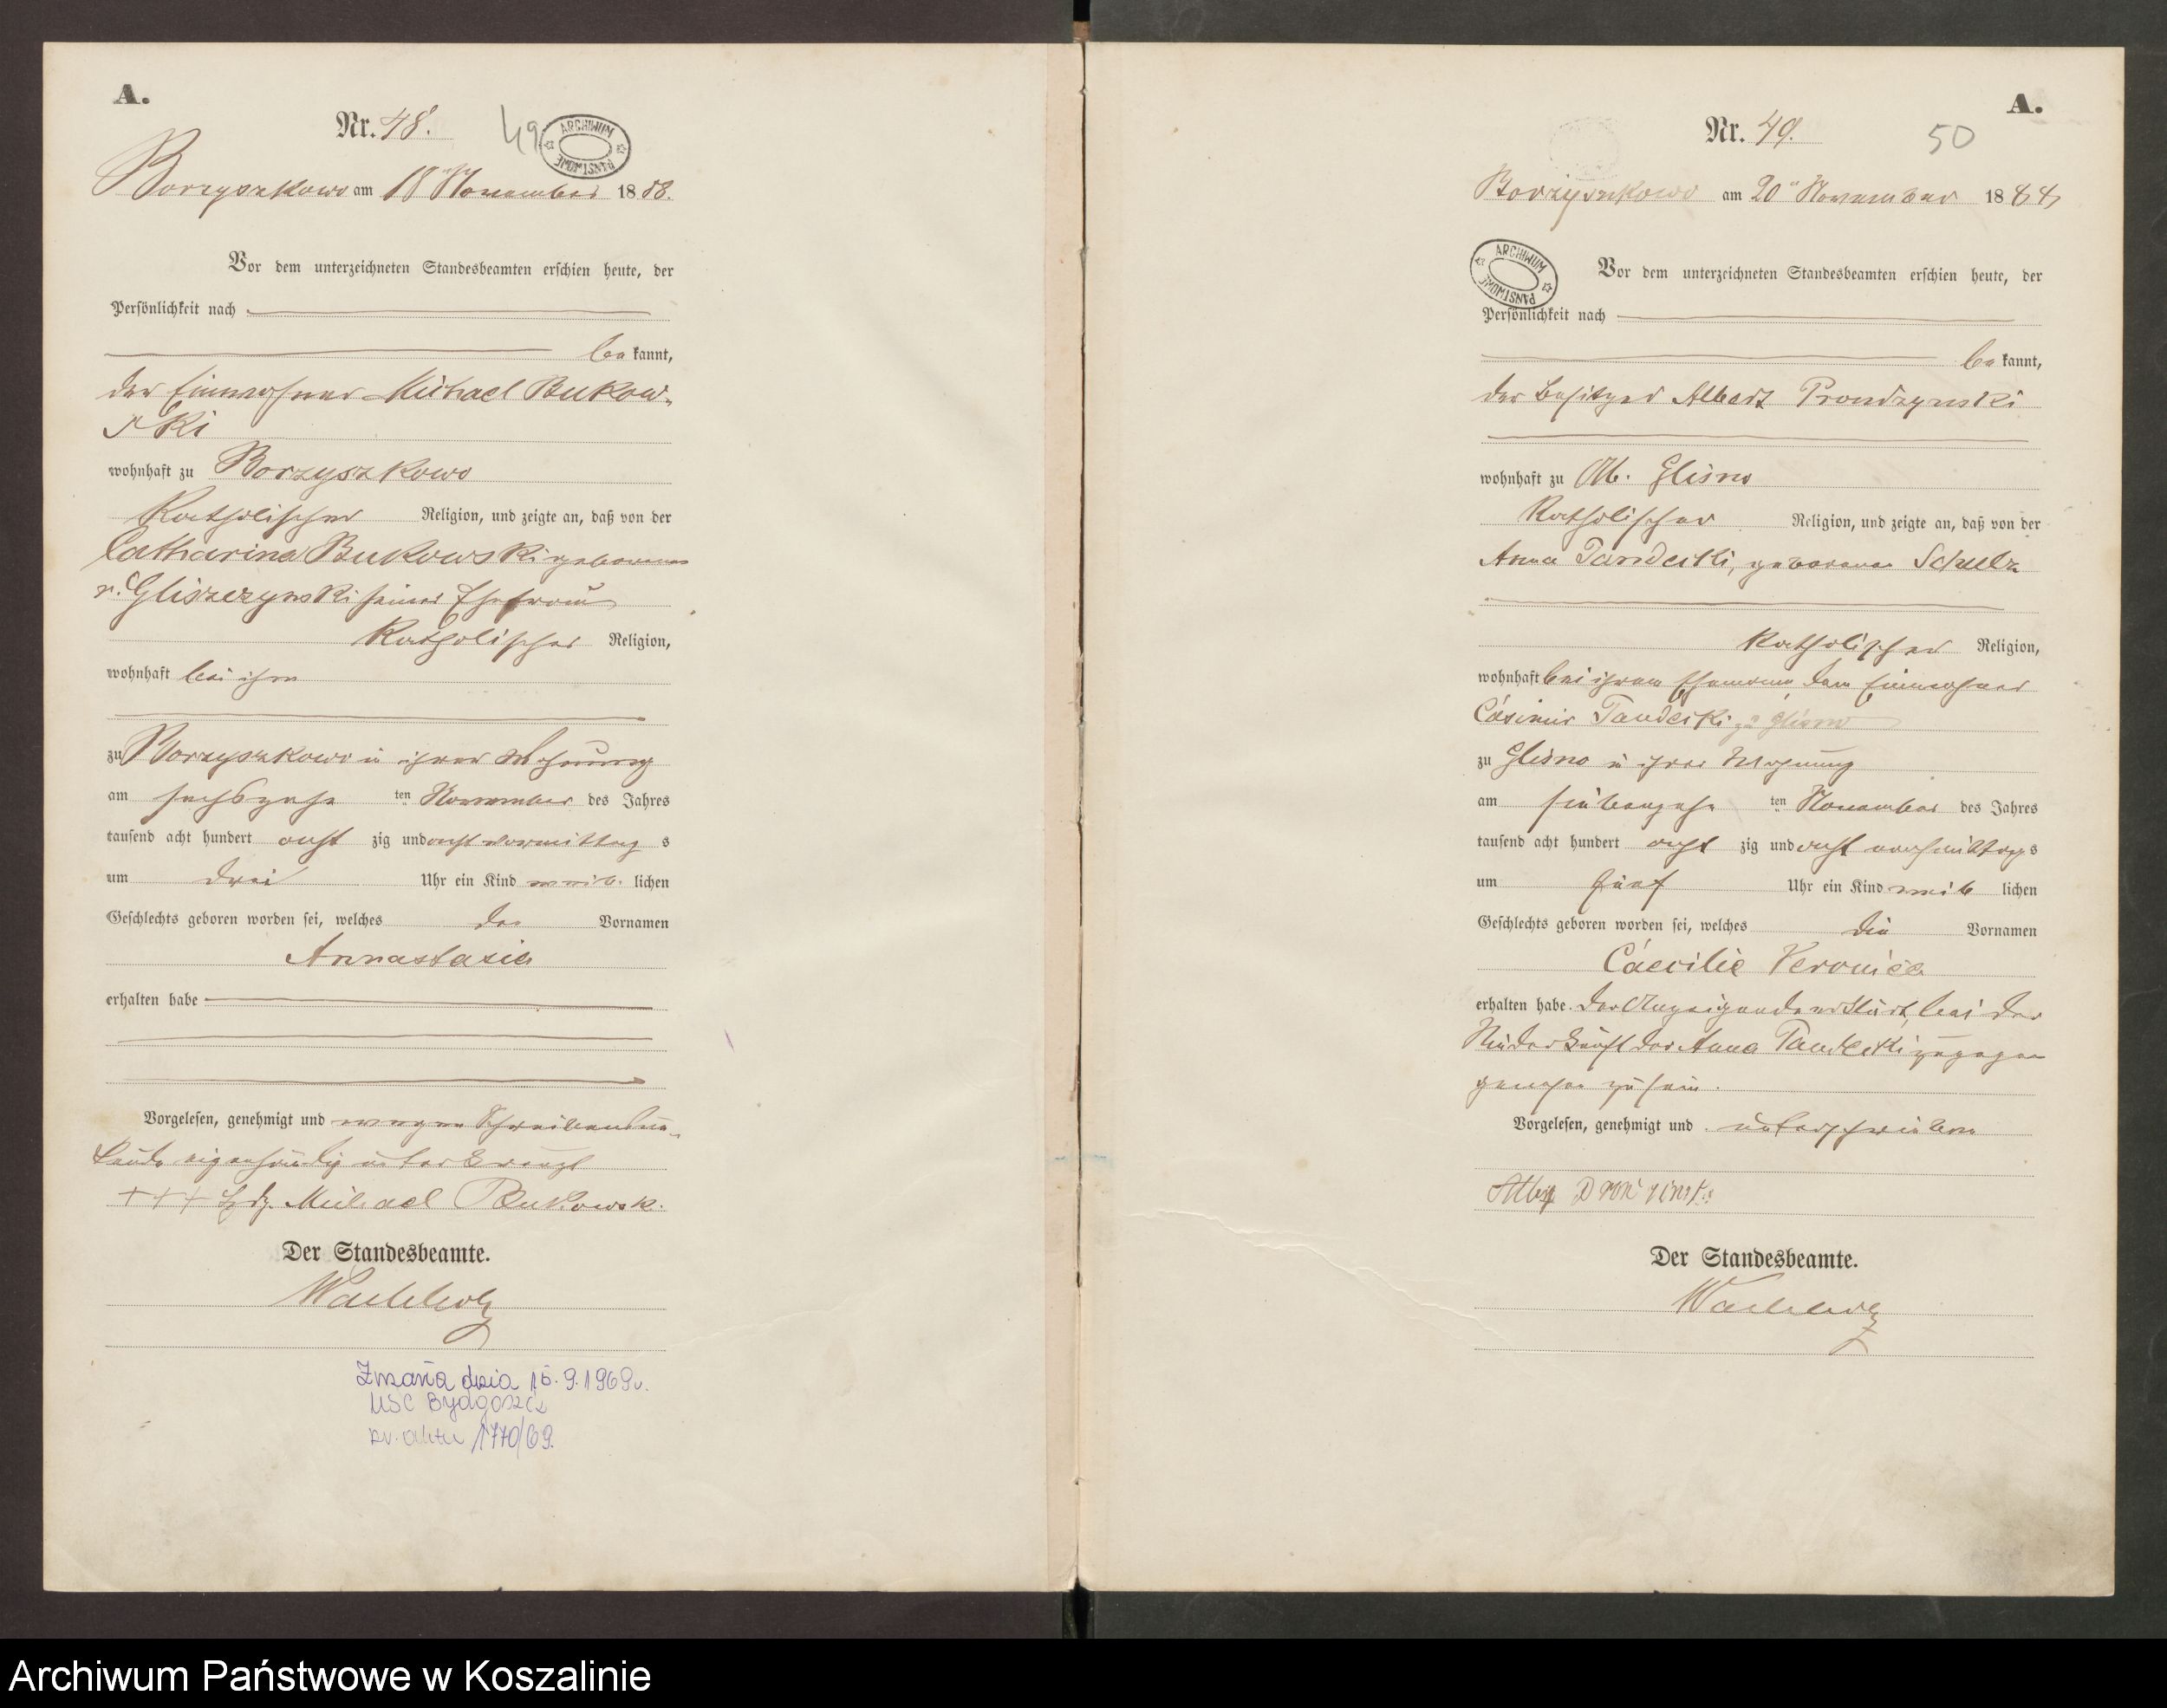 A.
Nr. 48.
49
ARCHIWUM PAŃSTWOWE
Borzyszkowo am 18 ten November 1888.
Vor dem unterzeichneten Standesbeamten erschien heute, der
Persönlichkeit nach
be kannt,
der Einwohner Michael Bukow-
ski
wohnhaft zu Borzyszkowo
Katholischer Religion, und zeigte an, daß von der
Catharina Bukowski geborenen
v. Gliszczynski seiner Ehefrau
Katholischer Religion,
wohnhaft bei ihm
zu Borzyszkowo in ihrer Wohnung
am sechszehn ten November des Jahres
tausend acht hundert acht zig und acht vormittag s
um drei Uhr ein Kind weib. lichen
Geschlechts geboren worden sei, welches den Vornamen
Annastasia
erhalten habe
Vorgelesen, genehmigt und wegen Schreibensun-
kunde eigenhändig unterkreuzt
+++ Hdz. Michael Bukowski.
Der Standesbeamte.
Wachholz
Zmarła dnia 15.9.1969r.
USC Bydgoszcz
nr. aktu 1770/69.
A.
Nr. 49.
50
Borzyszkowo am 20 ten November 1888
ARCHIWUM PAŃSTWOWE
Vor dem unterzeichneten Standesbeamten erschien heute, der
Persönlichkeit nach
be kannt,
der Besitzer Albert Prondzynski
wohnhaft zu Abb. Glisno
Katholischer Religion, und zeigte an, daß von der
Anna Tandecki, geborenen Schulz
Katholischer Religion,
wohnhaft bei ihrem Ehemann, dem Einwohner
Casimir Tandecki zu Glisno
zu Glisno in ihrer Wohnung
am siebenzehn ten November des Jahres
tausend acht hundert acht zig und acht nachmittags s
um fünf Uhr ein Kind weib lichen
Geschlechts geboren worden sei, welches die Vornamen
Cäcilie Veronica
erhalten habe. Der Anzeigende erklärt, bei der
Niederkunft der Anna Tandecki zugegen
gewesen zu sein.
Vorgelesen, genehmigt und unterschrieben
Der Standesbeamte.
Wachholz
Archiwum Państwowe w Koszalinie